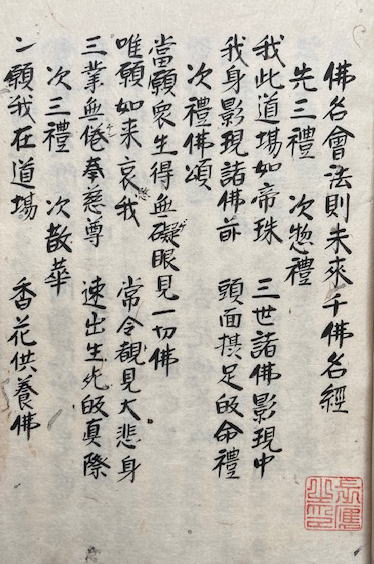 佛名會法則未來千佛名經
先三禮　次惣禮
我此道場如帝珠　三世諸佛影現中
我身影現諸佛前　頭面摂足皈命禮
次禮佛頌
當願衆生得無礙眼見一切佛
唯願如来哀愍我　常令覩見大悲身
三業無倦奉慈尊　速出生死皈真際
次三禮　次散華
二願我在道場　香花供養佛